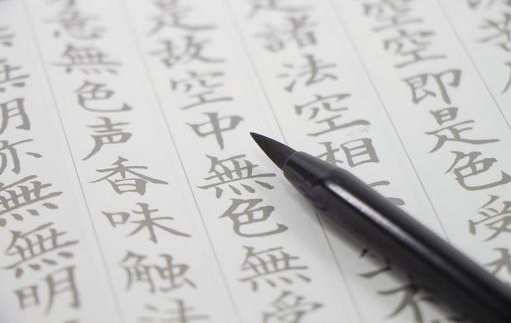 空空即是色受
是諸法空相
是故空中無色無受
意無色声香味触法
無明亦無無明